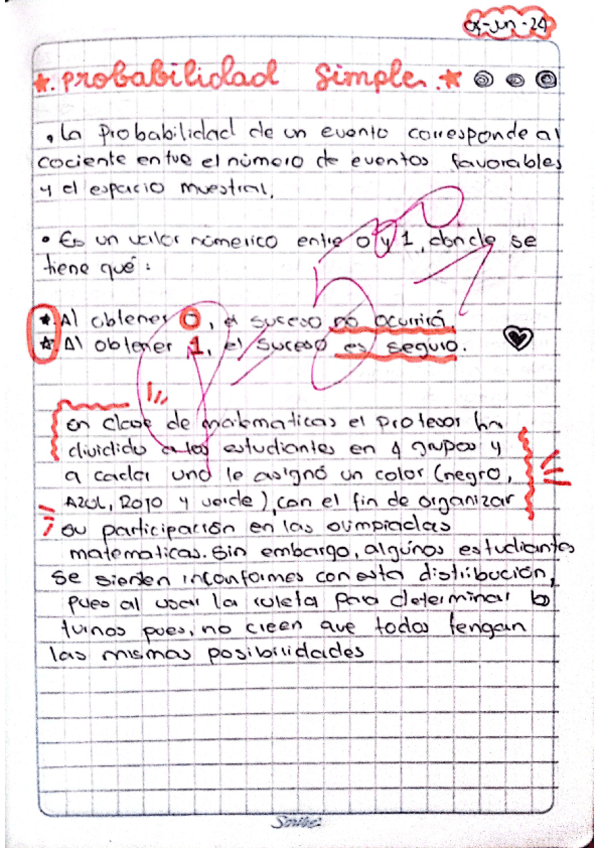 -Jun-24
★. Probabilidad simple.★
• La Probabilidad de un evento corresponde al
cociente entre el número de eventos favorables
y el espacio muestral.
• Es un valor númerico entre 0 y 1, donde se
tiene qué:
★ Al obtener 0, el suceso no ocurrirá.
★ Al obtener 1, el suceso es seguro.
En clase de matematicas el profesor ha
dividido a los estudiantes en 4 grupos y
a cada uno le asignó un color (negro,
Azul, Rojo y verde), con el fin de organizar
su participación en las olimpiadas
matematicas. Sin embargo, algúnos estudiantes
se sienten inconformes con esta distribución,
pues al usar la ruleta para determinar los
turnos pues, no creen que todos tengan
las mismas posibilidades
Scribe